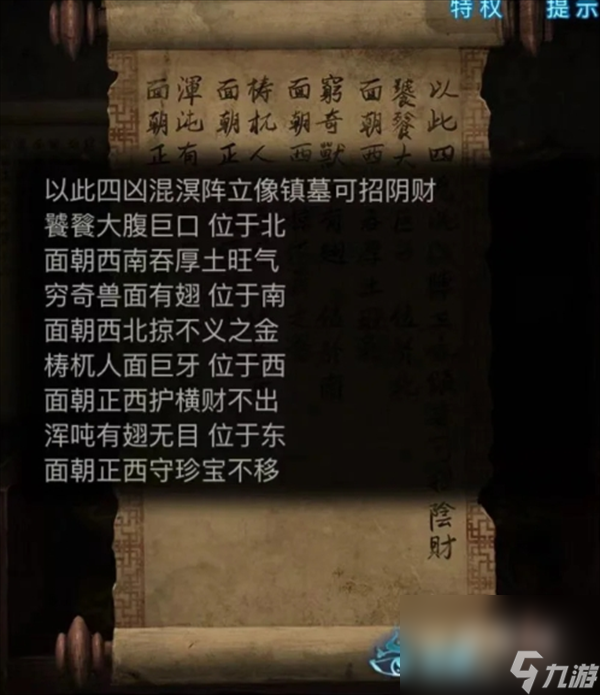 特权 提示
以此四凶混溟阵立像镇墓可招阴财
饕餮大腹巨口 位于北
面朝西南吞厚土旺气
穷奇兽面有翅 位于南
面朝西北掠不义之金
梼杌人面巨牙 位于西
面朝正西护横财不出
浑吨有翅无目 位于东
面朝正西守珍宝不移
以此四
陰財
饕餮大
面朝西
窮奇獸
面朝西
梼杌人
面朝正
渾沌有
面朝正
九游